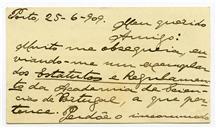 Porto, 25-6-909.
Meu querido
Amigo:
Muito me obsequeia, en-
viando-me um exemplar
dos Estatutos e Regulamen-
to da Academia de Scien-
cias de Portugal, a que per-
tence. Perdôe o incommodo